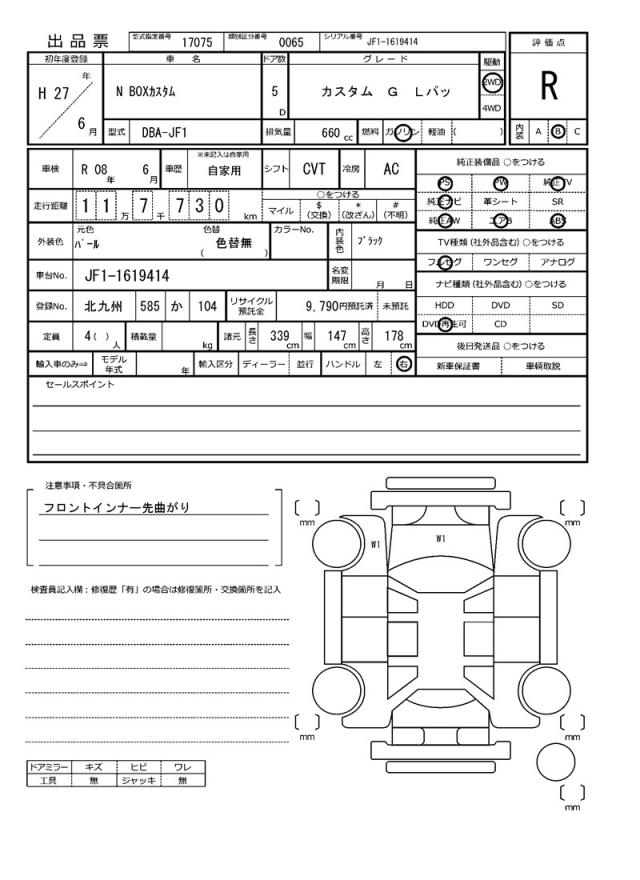 出品票 型式指定番号 17075 類別区分番号 0065 シリアル番号 JF1-1619414
評価点
R
初年度登録 車名 ドア数 グレード 駆動
H 27 年 6 月
N BOXカスタム 5 D カスタム G Lパッ 2WD 4WD
型式 DBA-JF1 排気量 660 cc 燃料 ガソリン 軽油 ( ) 内装 A B C
車検 R 08 年 6 月 車歴 ※未記入は自家用 自家用 シフト CVT 冷房 AC
走行距離 11 万 7 千 730 km
○をつける
マイル $ (交換) * (改ざん) # (不明)
外装色 元色 パール 色替 色替無 ( ) カラーNo. 内装色 ブラック
車台No. JF1-1619414 名変期限 月 日
登録No. 北九州 585 か 104 リサイクル預託金 9,790円預託済 未預託
定員 4( ) 人 積載量 kg 諸元 長さ 339 cm 幅 147 cm 高さ 178 cm
輸入車のみ⇒ モデル年式 年 輸入区分 ディーラー 並行 ハンドル 左 右
純正装備品 ○をつける
PS PW 純正TV
純正ナビ 革シート SR
純正AW エアB ABS
TV種類(社外品含む) ○をつける
フルセグ ワンセグ アナログ
ナビ種類(社外品含む) ○をつける
HDD DVD SD
DVD再生可 CD
後日発送品 ○をつける
新車保証書 車輌取説
セールスポイント
注意事項・不具合箇所
フロントインナー先曲がり
検査員記入欄：修復歴「有」の場合は修復箇所・交換箇所を記入
ドアミラー キズ ヒビ ワレ
工具 無 ジャッキ 無
[ ] mm
[ ] mm
W1
W1
[ ] mm
[ ] mm
[ ] mm